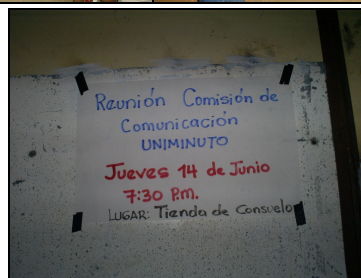 Reunión Comisión de
Comunicación
UNIMINUTO
Jueves 14 de Junio
7:30 P.m.
LUGAR: Tienda de Consuelo